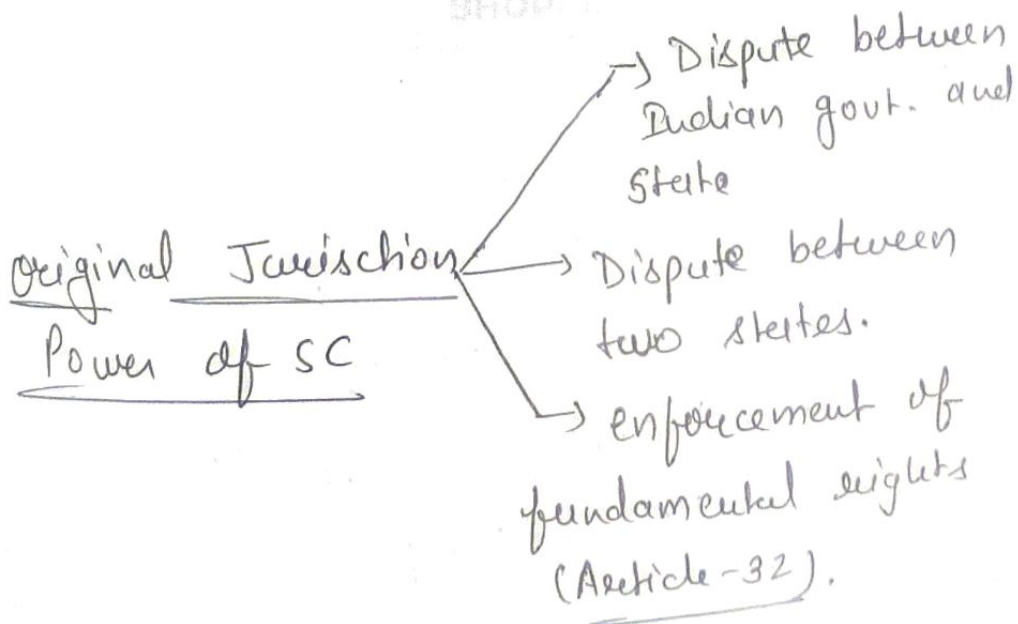 Original Jurischion
Power of SC
→ Dispute between
Indian govt. and
State
→ Dispute between
two states.
→ enforcement of
fundamental rights
(Article-32).